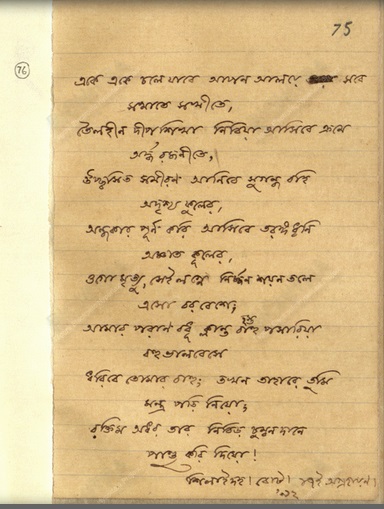 75
76
একে একে চলে যাবে আপন আলয়ে সবে
সখাতে সখীতে,
তৈলহীন দীপশিখা নিবিয়া আসিবে ক্রমে
অর্দ্ধ রজনীতে,
উচ্ছ্বসিত সমীরণ আনিবে সুগন্ধ বহি
অদৃশ্য ফুলের,
অন্ধকার পূর্ণ করি আসিবে তরঙ্গধ্বনি
অজ্ঞাত কূলের,
ওগো মৃত্যু, সেই লগ্নে নির্জ্জন শয়নতলে
এসো বরবেশে;
আমার পরাণ বধূ ক্লান্ত হস্ত প্রসারিয়া
বহু ভালবেসে
ধরিবে তোমার বাহু; তখন তাহারে তুমি
মন্ত্র পড়ি নিয়ো;
রক্তিম অধর তার নিবিড় চুম্বন দানে
পাণ্ডু করি দিয়ো!
শিলাইদহ। বোট। অগ্রহায়ণ।